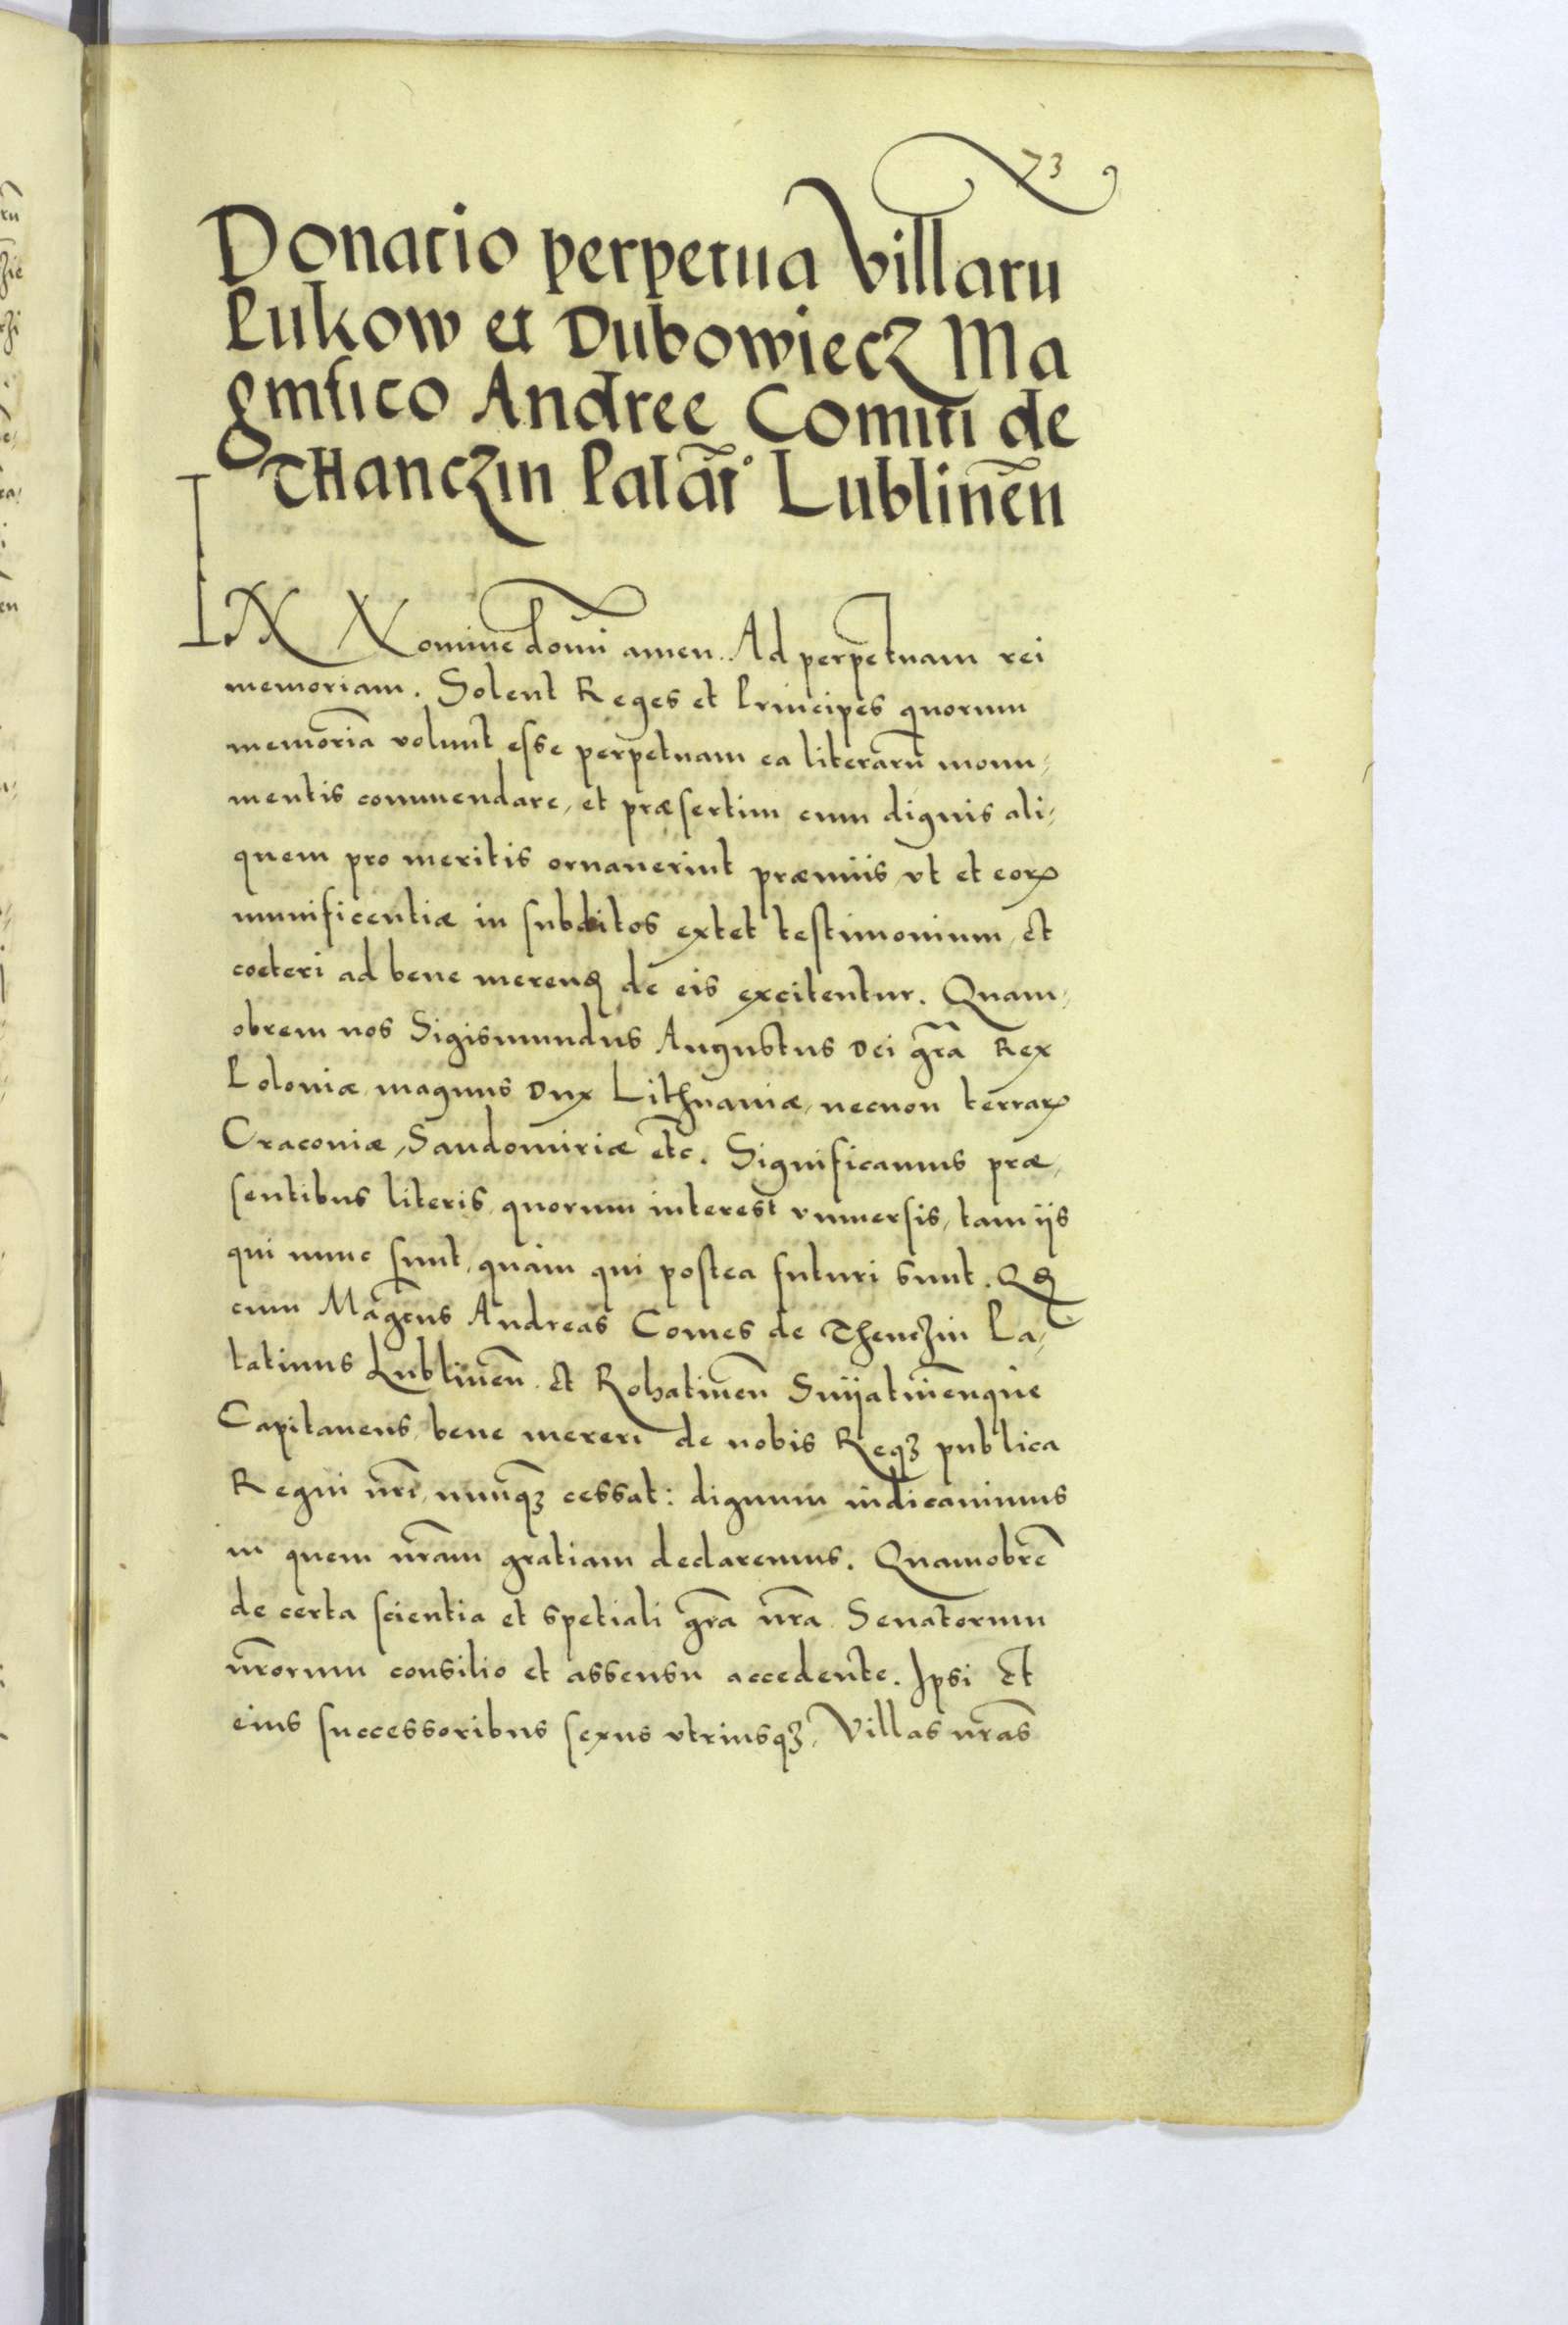 73
Donatio perpetua Villarũ
Pukow et Dubowiecz Ma
gnifico Andree Comiti de
THanczin Palãt° Lublineñ
IN Nomine domĩ amen. Ad perpetuam rei
memoriam. Solent Reges et Principes quorum
memoriã volunt esse perpetuam ea literarũ monu-
mentis commendare, et præsertim cum dignis ali-
quem pro meritis ornauerint præmiis, vt et eorꝝ
munificentiæ in subditos extet testimonium, et
coeteri ad bene merenđ de eis excitentur. Quam-
obrem nos Sigismundus Augustus Dei grã Rex
Poloniæ, magnus Dux Lithuaniæ, necnon terrarꝝ
Cracoviæ, Sandomiriæ etc̃. Significamus præ-
sentibus literis, quorum interest vniuersis, tam ijs
qui nunc sunt, quàm qui postea futuri sunt. Qđ
cum Magcũs Andreas Comes de Thenczin Pa-
latinus Lublineñ. et Rohatineñ Snijatineñque
Capitaneus, bene mereri de nobis Reqꝫ publica
Regni nrĩ, nunqꝫ cessat: dignum iudicauimus
in quem nrãm gratiam declaremus. Quamobrẽ
de certa scientia et spetiali grã nrã Senatorum
nrõrum consilio et assensu accedente. Ipsi et
eius successoribus sexus vtriusqꝫ, Villas nrãs